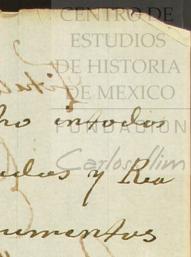 CENTRO DE
ESTUDIOS
DE HISTORIA
DE MEXICO
FUNDACIÓN
Carlos Slim
ho en todos
y Rea
umentos